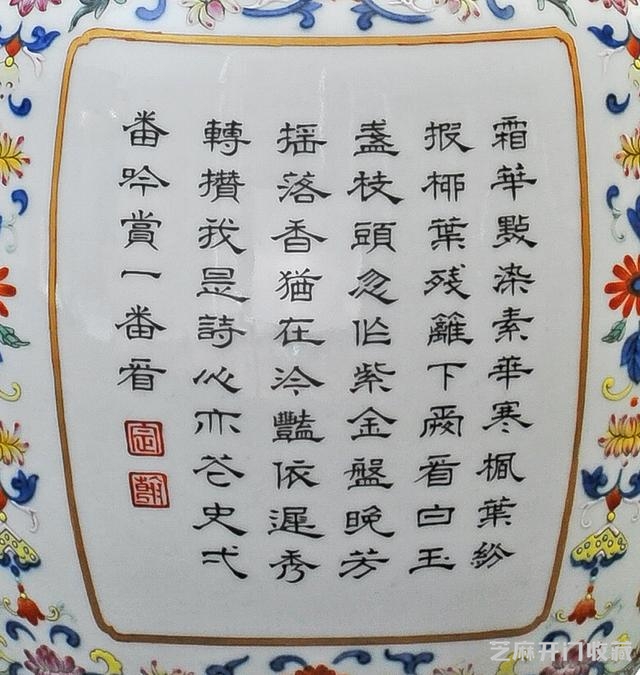 霜華點染素華寒楓葉紛
披柳葉残籬下卻看白玉
盞枝頭忽作紫金盤晚芳
摇落香猶在冷豔依遲秀
轉攢我是詩心亦花史弌
番吟賞一番看
宸
翰
芝麻开门收藏